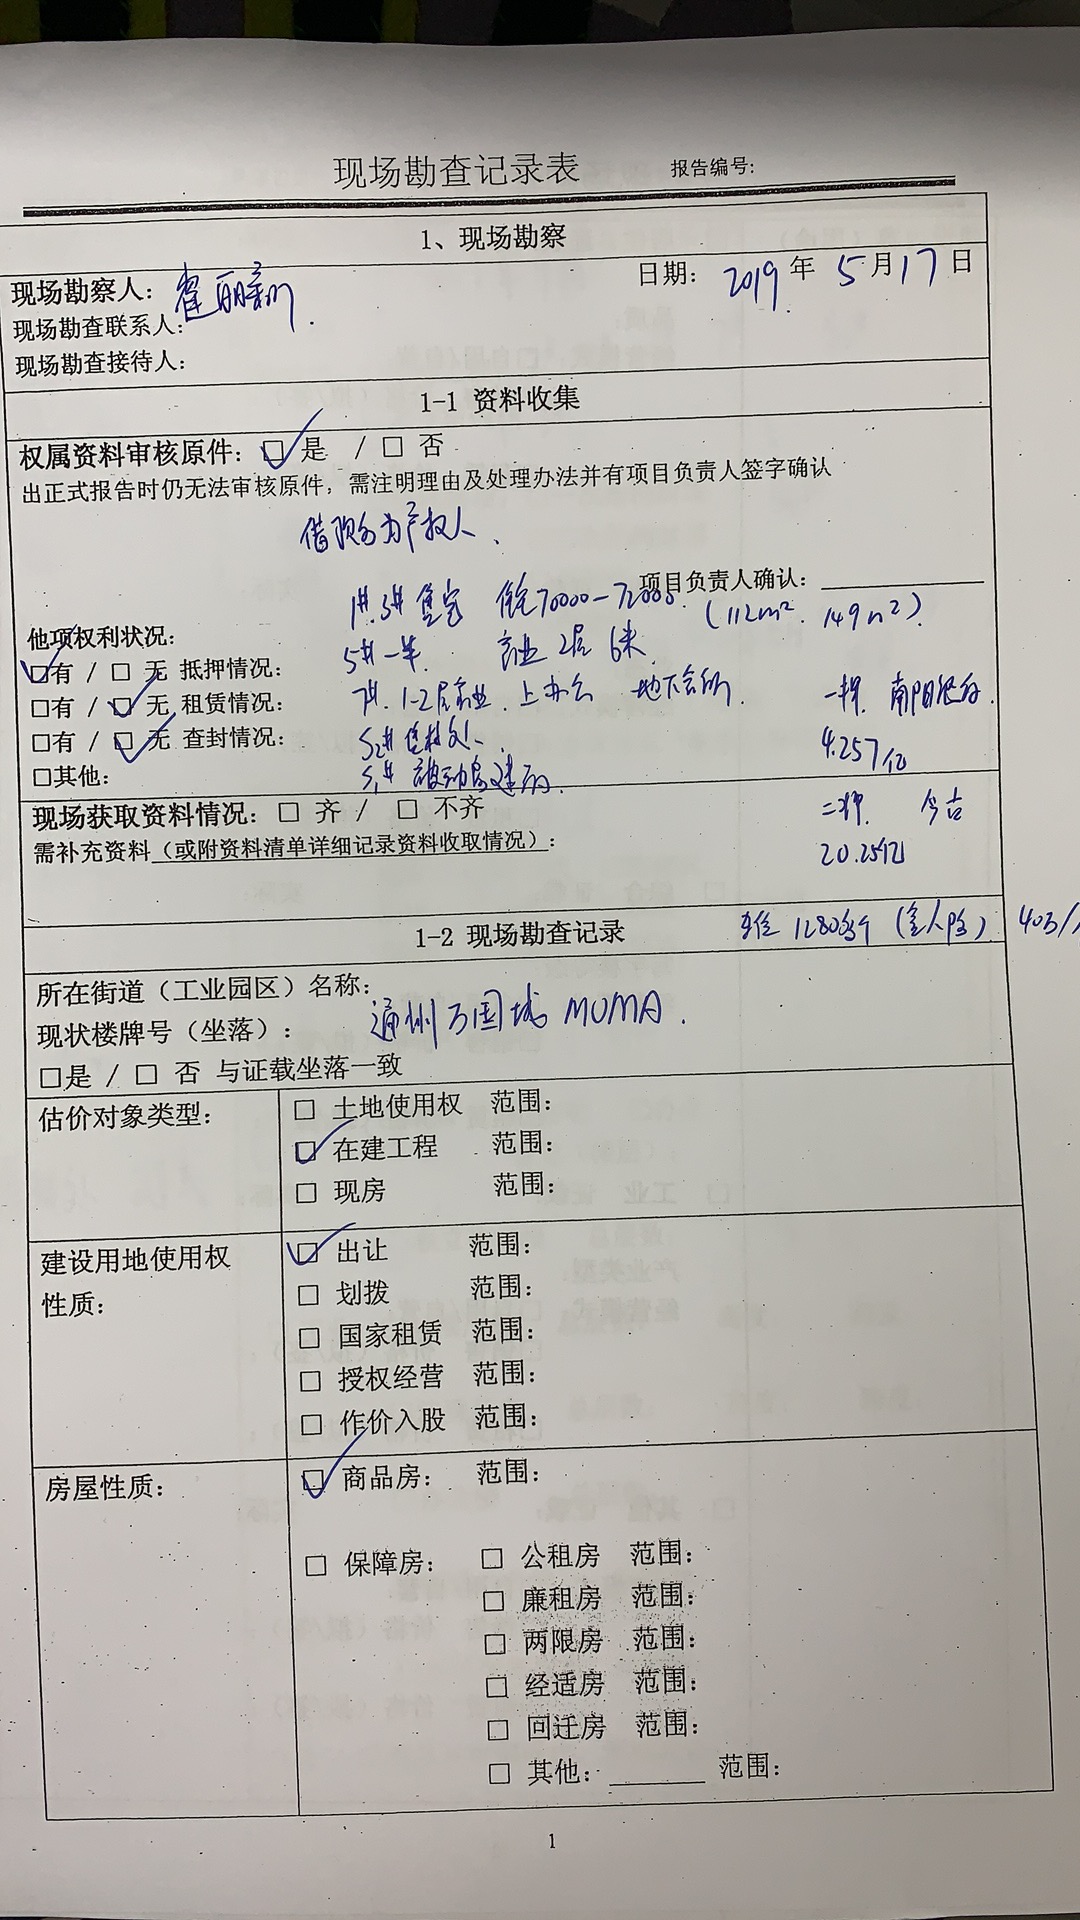 现场勘查记录表 报告编号:
1、现场勘察
现场勘察人: 日期: 2019 年 5 月 17 日
现场勘查联系人:
现场勘查接待人:
1-1 资料收集
权属资料审核原件: ☑ 是 / □ 否
出正式报告时仍无法审核原件, 需注明理由及处理办法并有项目负责人签字确认
为产权人、
项目负责人确认:
1#.3# 售完 70000-72000. (112m² 149m²)
他项权利状况:
5#一半. 商业 2层 6米
☑有 / □ 无 抵押情况:
7#. 1-2层商业. 上办公 地下会所 一押. 南阳银行.
□有 / ☑ 无 租赁情况:
□有 / ☑ 无 查封情况: 4.257亿
□其他:
现场获取资料情况: □ 齐 / □ 不齐 二押. 今古
需补充资料(或附资料清单详细记录资料收取情况): 20.25亿
1-2 现场勘查记录 车位 1280个 (含人防) 40万/
所在街道(工业园区)名称:
现状楼牌号(坐落): 通州万国城 MOMA.
□是 / □ 否 与证载坐落一致
估价对象类型: □ 土地使用权 范围:
☑ 在建工程 范围:
□ 现房 范围:
建设用地使用权性质: ☑ 出让 范围:
□ 划拨 范围:
□ 国家租赁 范围:
□ 授权经营 范围:
□ 作价入股 范围:
房屋性质: ☑ 商品房: 范围:
□ 保障房: □ 公租房 范围:
□ 廉租房 范围:
□ 两限房 范围:
□ 经适房 范围:
□ 回迁房 范围:
□ 其他: 范围:
1